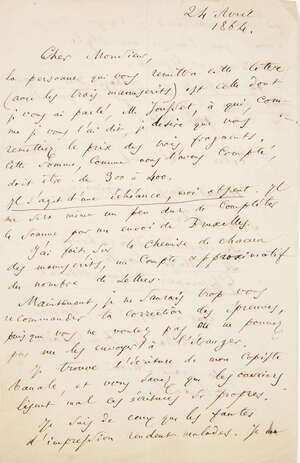 24 Août
1864.
Cher Monsieur,
la personne qui vous remettra cette lettre
(avec les trois manuscrits) est celle dont
je vous ai parlé, M. Jousset, à qui, com-
me je vous l'ai dit, je désire que vous
remettiez le prix des trois fragments.
Cette somme, comme nous l'avons compté,
doit être de 300 à 400.
Il s'agit d'une échéance, moi absent. Il
me sera même un peu dur de compléter
la somme par un envoi de Bruxelles.
J'ai fait sur la chemise de chacun
des manuscrits, un compte approximatif
du nombre de lettres.
Maintenant, je ne saurais trop vous
recommander la correction des épreuves,
puisque vous ne voulez pas ou ne pouvez
pas me les envoyer à l'étranger.
Je trouve l'écriture de mon copiste
banale, et vous savez que les ouvriers
lisent mal ces écritures si propres.
Je suis de ceux que les fautes
d'impression rendent malades. Je